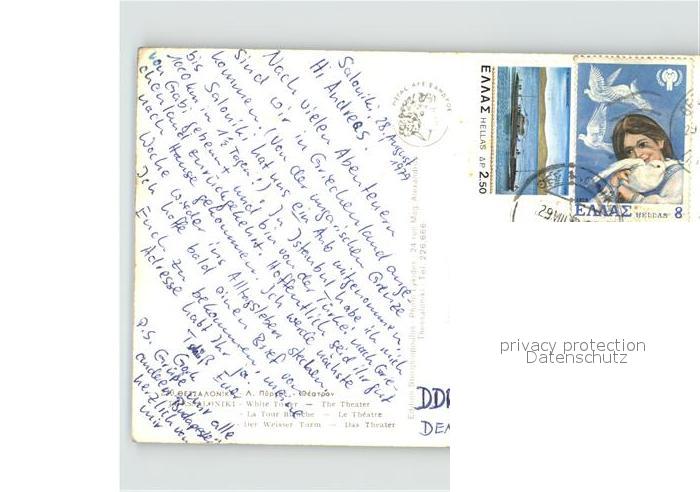 Saloniki, 28. August 1979
Hi Andreas,
Nach vielen Abenteuern
sind wir in Griechenland ange-
kommen! (Von der ungarischen Grenze
bis Saloniki hat uns ein Auto mitgenommen,
1000 km in 1½ Tagen!) In Istanbul habe ich mich
von Gabi getrennt und bin von der Türkei nach Grie-
chenland zurückgekehrt. Hoffentlich seid ihr gut
nach Hause gekommen. Ich werde nächste
Woche wieder ins Alltagsleben stecken.
Ich hoffe bald einen Brief von
Euch zu bekommen, meine
Adresse habt Ihr ja.
Tschüß Eure
P.S. Grüße
alle
anderen Budapester
herzlich von
mir
ΜΕΓΑΣ ΑΛΕΞΑΝΔΡΟΣ
ΕΛΛΑΣ HELLAS ΔΡ 2.50
ΕΛΛΑΣ HELLAS 8
29 VIII
24 rue Meg. Alexandrou
Thessaloniki - Tel. 226.666
ΘΕΣΣΑΛΟΝΙΚΗ - Λ. Πύργος - Θέατρον
THESSALONIKI - White Tower — The Theater
- La Tour Blanche — Le Théatre
- Der Weisser Turm — Das Theater
DDR
DEN
privacy protection
Datenschutz